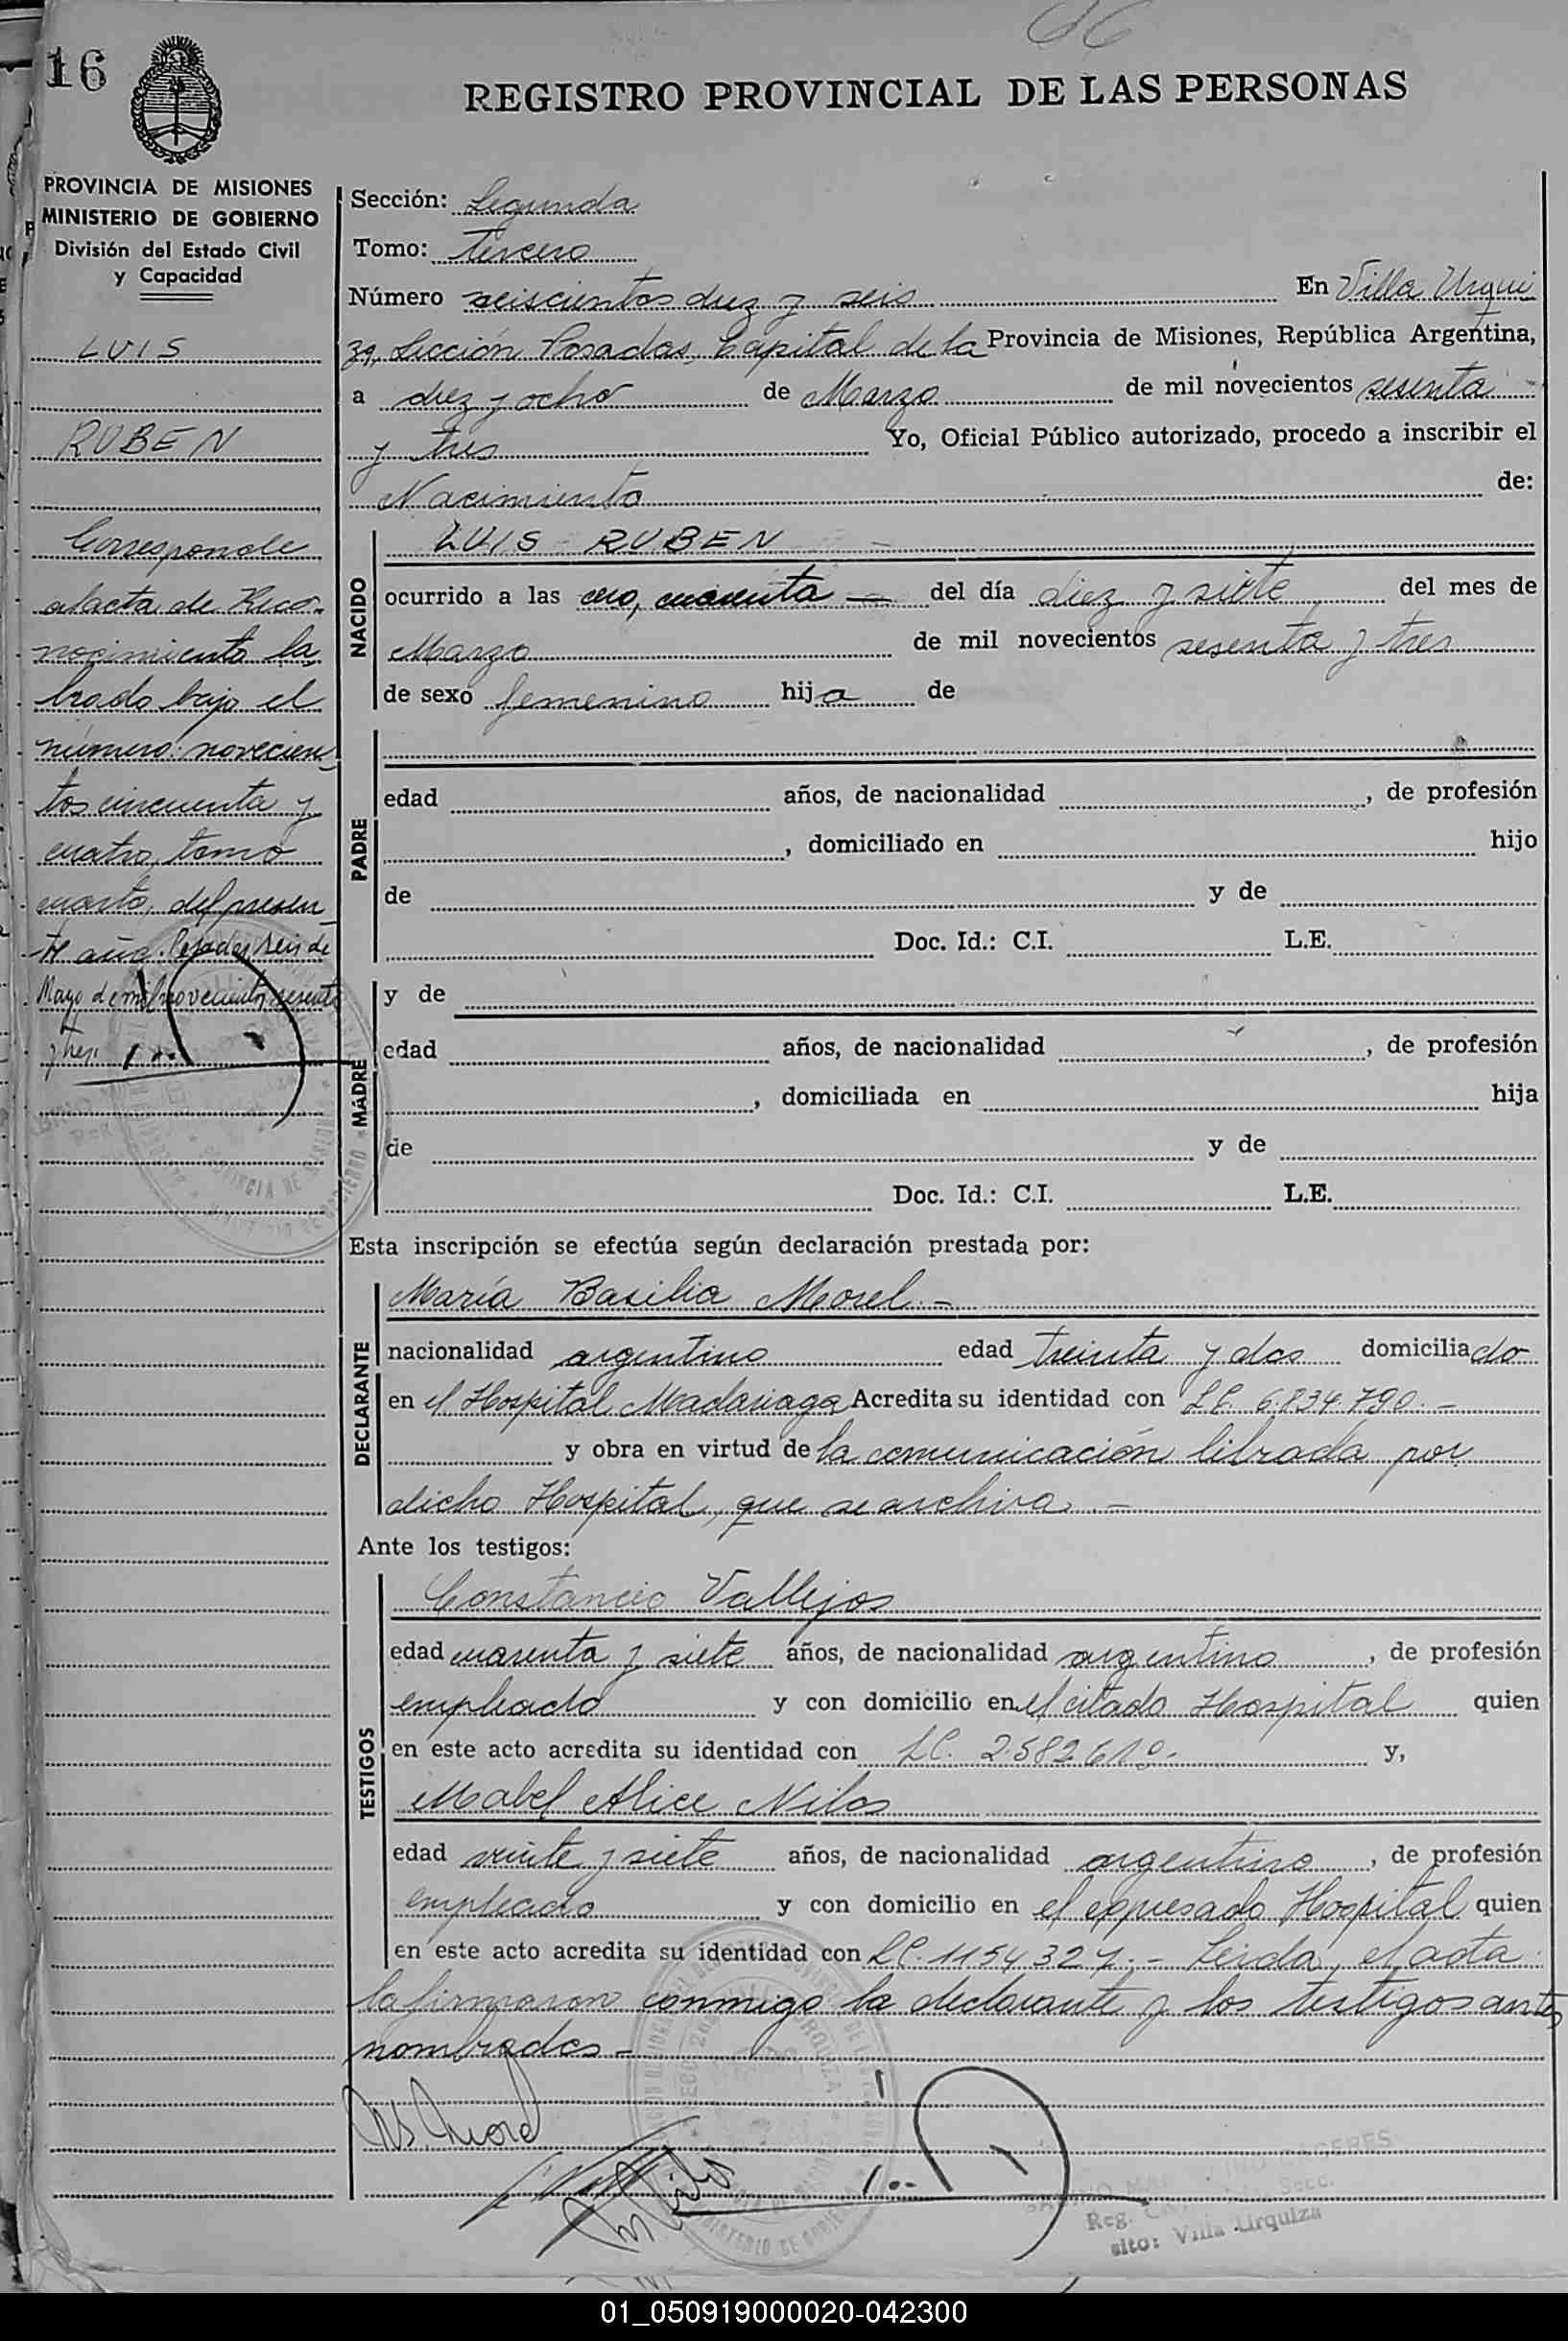 16
REGISTRO PROVINCIAL DE LAS PERSONAS
PROVINCIA DE MISIONES
MINISTERIO DE GOBIERNO
División del Estado Civil
y Capacidad
LUIS
RUBEN
Corresponde
al acta de Reco-
nocimiento la
brado bajo el
número: novecien
tos cincuenta y
cuatro, tomo
cuarto, del presen
te año. Posadas, seis de
Mayo de mil novecientos sesenta
y tres.
Sección: Segunda
Tomo: Tercero
Número seiscientos diez y seis En Villa Urqui
za, Sección Posadas, Capital de la Provincia de Misiones, República Argentina,
a diez y ocho de Marzo de mil novecientos sesenta
y tres Yo, Oficial Público autorizado, procedo a inscribir el
Nacimiento de:
NACIDO
LUIS RUBEN
ocurrido a las cero, cuarenta — del día diez y siete del mes de
Marzo de mil novecientos sesenta y tres
de sexo femenino hija de
PADRE
edad años, de nacionalidad , de profesión
, domiciliado en hijo
de y de
Doc. Id.: C.I. L.E.
MADRE
y de
edad años, de nacionalidad , de profesión
, domiciliada en hija
de y de
Doc. Id.: C.I. L.E.
Esta inscripción se efectúa según declaración prestada por:
DECLARANTE
María Basilia Morel.-
nacionalidad argentino edad treinta y dos domiciliado
en el Hospital Madariaga Acredita su identidad con LC. 6.834.790.-
y obra en virtud de la comunicación librada por
dicho Hospital, que se archiva.-
Ante los testigos:
TESTIGOS
Constancio Vallejos
edad cuarenta y siete años, de nacionalidad argentino, de profesión
empleado y con domicilio en el citado Hospital quien
en este acto acredita su identidad con y,
Mabel Alice Nilos
edad veinte y siete años, de nacionalidad argentino, de profesión
empleado y con domicilio en el expresado Hospital quien
en este acto acredita su identidad con LC. 1154327.- Leida, el acta
la firmaron conmigo la declarante y los testigos antes
nombrados-
Morel
Reg.
sito: Villa Urquiza
01_050919000020-042300